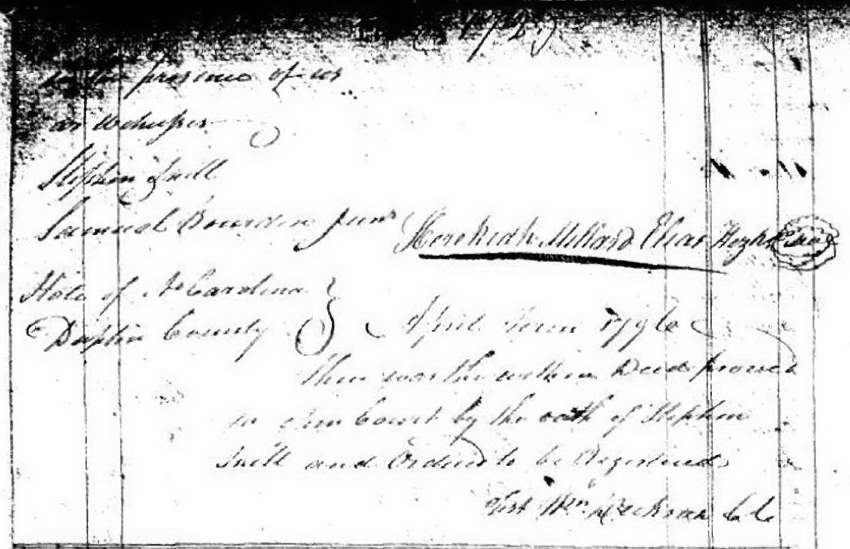 in the presence of us
as witnesses
Stephen Snell
Samuel Bowden Junr Hezekiah Millard Elias Hezh
State of No Carolina }
Duplin County } April Term 1796
Then was the within Deed proved
in Open Court by the oath of Stephen
Snell and Ordered to be Registered
Test Wm Dickson CC